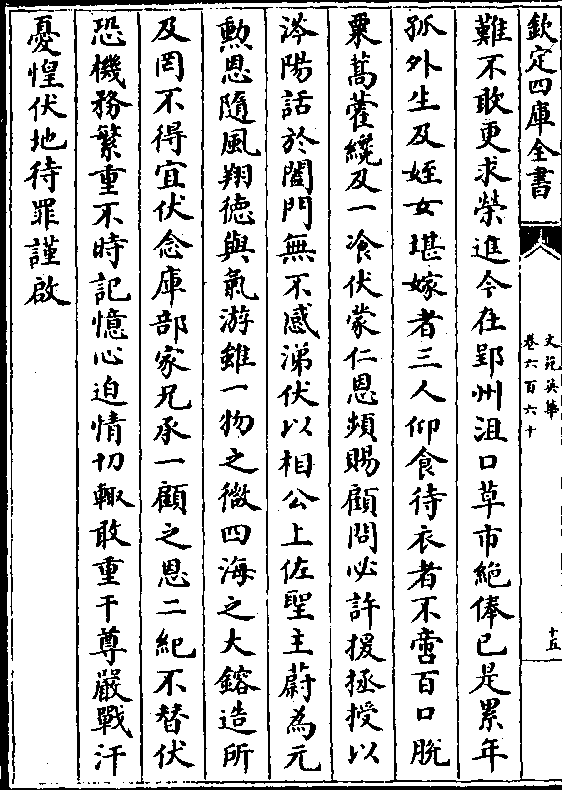 欽定四庫全書
文苑英華
卷六百六十
十五
難不敢更求榮進今在郢州沮口草市絶俸已是累年
孤外生及姪女堪嫁者三人仰食待衣者不啻百口脫
粟蒿藿纔及一飡伏蒙仁恩頻賜顧問必許援拯授以
涔陽話於閤門無不感涕伏以相公上佐聖主蔚為元
勲恩隨風翔德與氣游雖一物之微四海之大鎔造所
及罔不得宜伏念庫部家兄承一顧之恩二紀不替伏
恐機務繁重不時記憶心迫情切輙敢重干尊嚴戰汗
憂惶伏地待罪謹啟